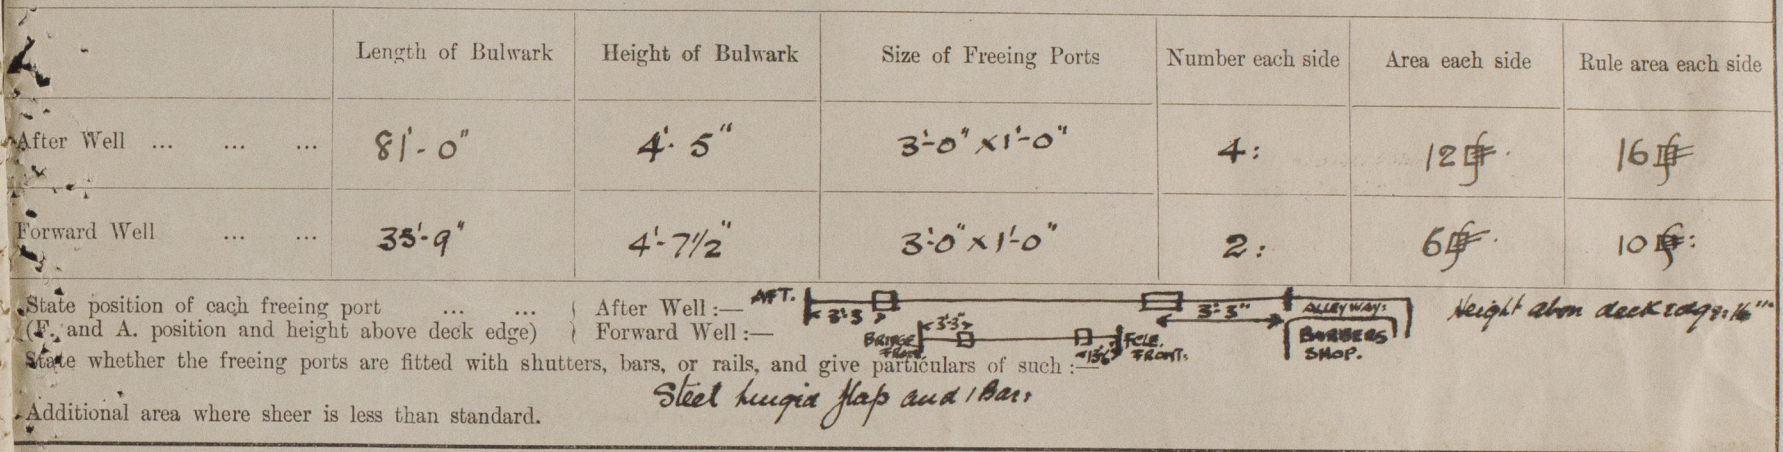 Length of Bulwark Height of Bulwark Size of Freeing Ports Number each side Area each side Rule area each side
After Well ... ... ... 81'-0" 4'-5" 3'-0" x 1'-0" 4: 12 16
Forward Well ... ... 33'-9" 4'-7½" 3'-0" x 1'-0" 2: 6 10
State position of each freeing port ... ... After Well:— AFT. 3'3 3'-3" ALLEYWAY: Height above deck edge: 16"
(F. and A. position and height above deck edge) Forward Well:— BRIDGE FRONT. 3'3" FCLE. FRONT: BARBERS SHOP.
State whether the freeing ports are fitted with shutters, bars, or rails, and give particulars of such:—
Steel hinged flap and 1 Bar:
Additional area where sheer is less than standard.